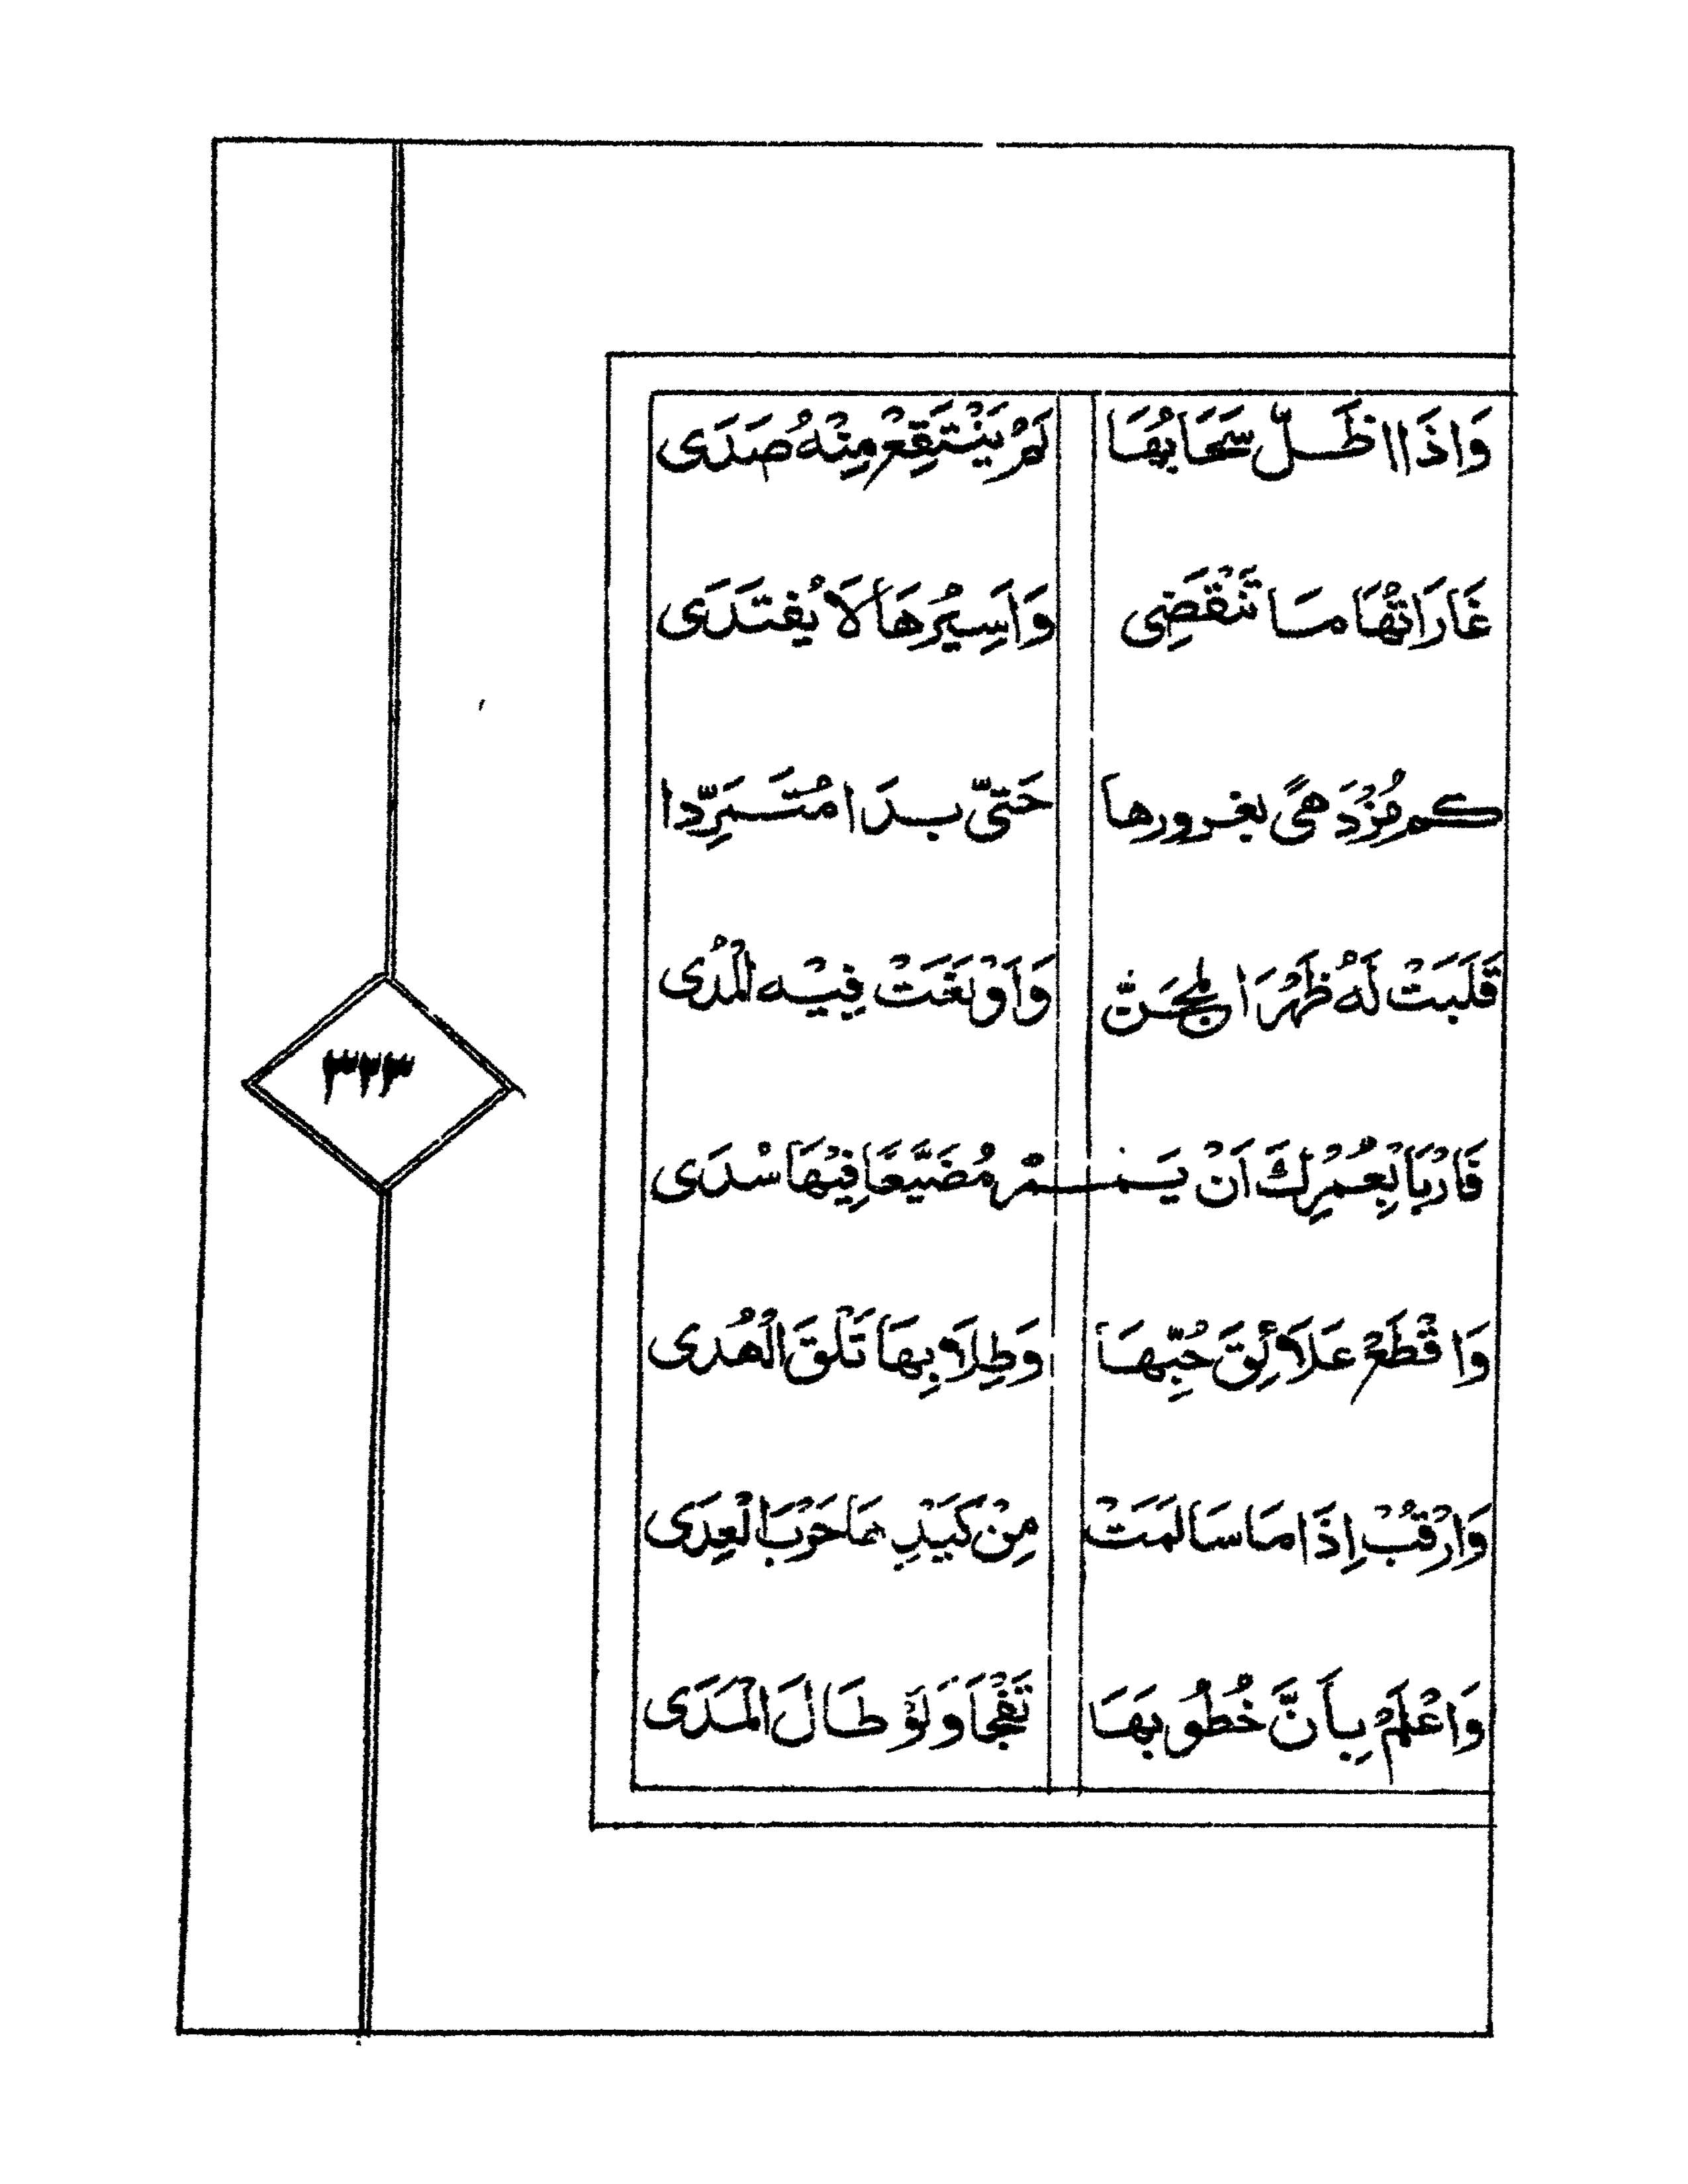 وَاذَا اظَلّ سَحَابُهَا لَمْ يَنْتَقِعْ مِنْهُ صَدَى
غَارَاتُهَا مَا تَنْقَضِى وَاَسِيْرُهَا لَا يُفْتَدَى
كم مُزْدَهىً بغرورها حَتّى بدَا مُتَمَرِّدا
قَلَبَتْ لَهُ ظَهْرَ المِجَنّ وَاَوْلَغَتْ فِيْهِ الْمُدى
فَارْبَأ بِعُمْرِكَ اَنْ يَمُرْ مُضَيَّعًا فِيْهَا سُدَى
وَاقْطَعْ عَلَائِقَ حُبِّهَا وَطِلَابِهَا تَلْقَ الْهُدى
وَارْقُبْ اِذَا مَا سَالَمَتْ مِنْ كَيْدِهَا حَرْبَ الْعِدَى
وَاعْلَمْ بِأَنَّ خُطُوبَهَا تَفْجَا وَلَوْ طَالَ الْمَدَى
٣٢٣